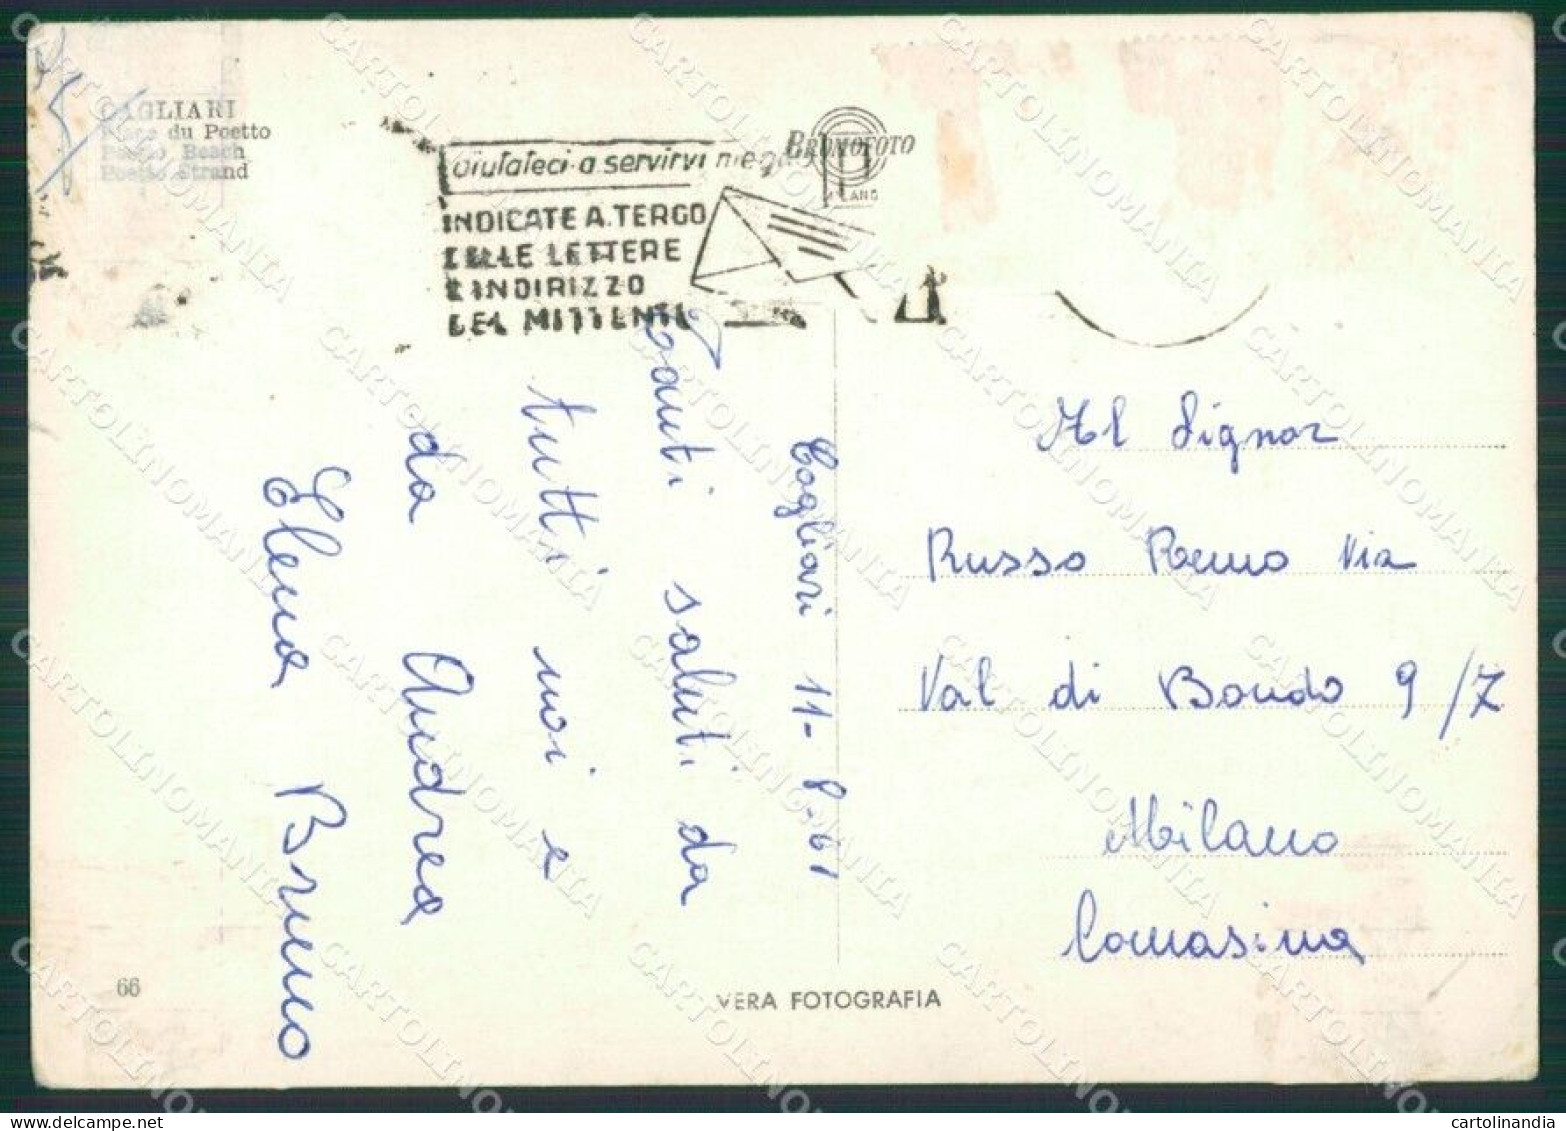 CAGLIARI
Plage du Poetto
Poetto Beach
Poetto Strand
aiutateci a servirvi meglio
INDICATE A TERGO
DELLE LETTERE
L'INDIRIZZO
DEL MITTENTE
BROMOFOTO
MILANO
Cagliari 11-8-61
Tanti saluti da
tutti noi e
da Andrea
Elena Bruno
Al Signor
Russo Remo Via
Val di Bondo 9/7
Milano
Comasina
66
VERA FOTOGRAFIA
CARTOLINOMANIA
cartolinandia